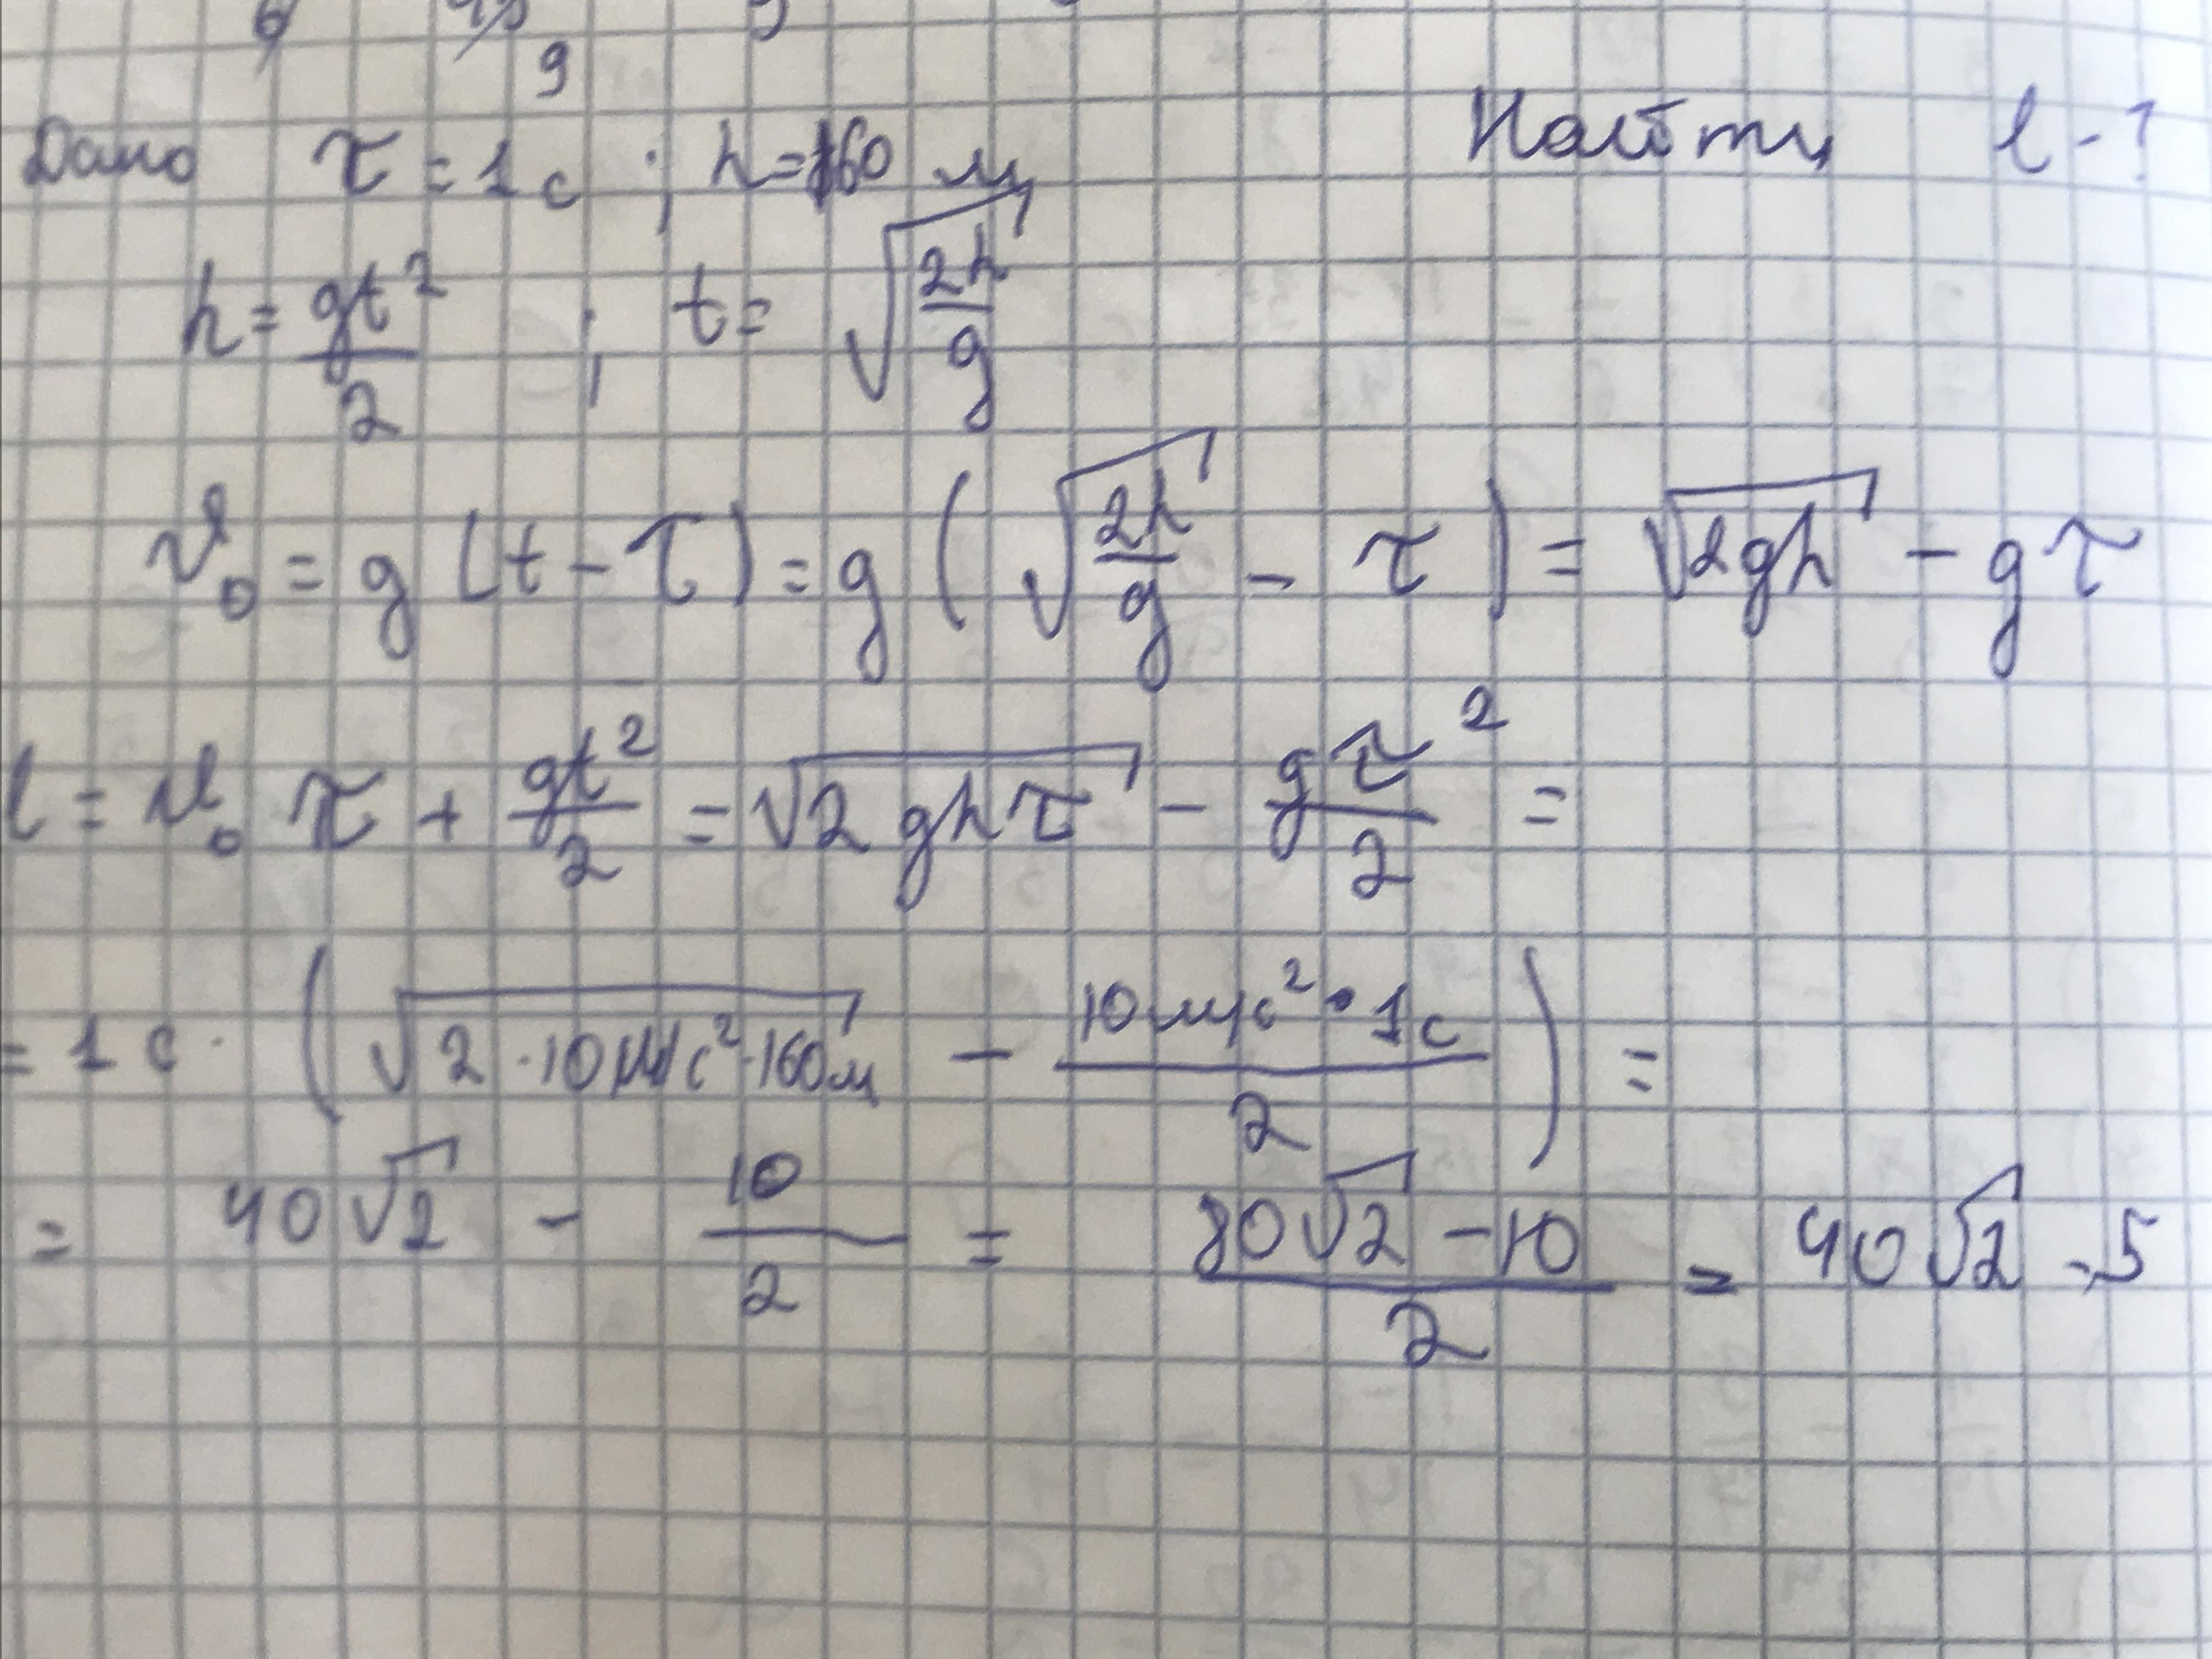 9
Дано τ = 1 с ; h = 160 м Найти l - ?
h = gt²/2 ; t = √(2h/g)
v₀ = g (t - τ) = g (√(2h/g) - τ) = √(2gh) - gτ
l = v₀ τ + gt²/2 = √(2 ghτ) - gτ²/2 =
= 1 с · (√(2 · 10 м/с² · 160 м) - 10 м/с² · 1 с/2) =
= 40√2 - 10/2 = (80√2 - 10)/2 = 40√2 - 5